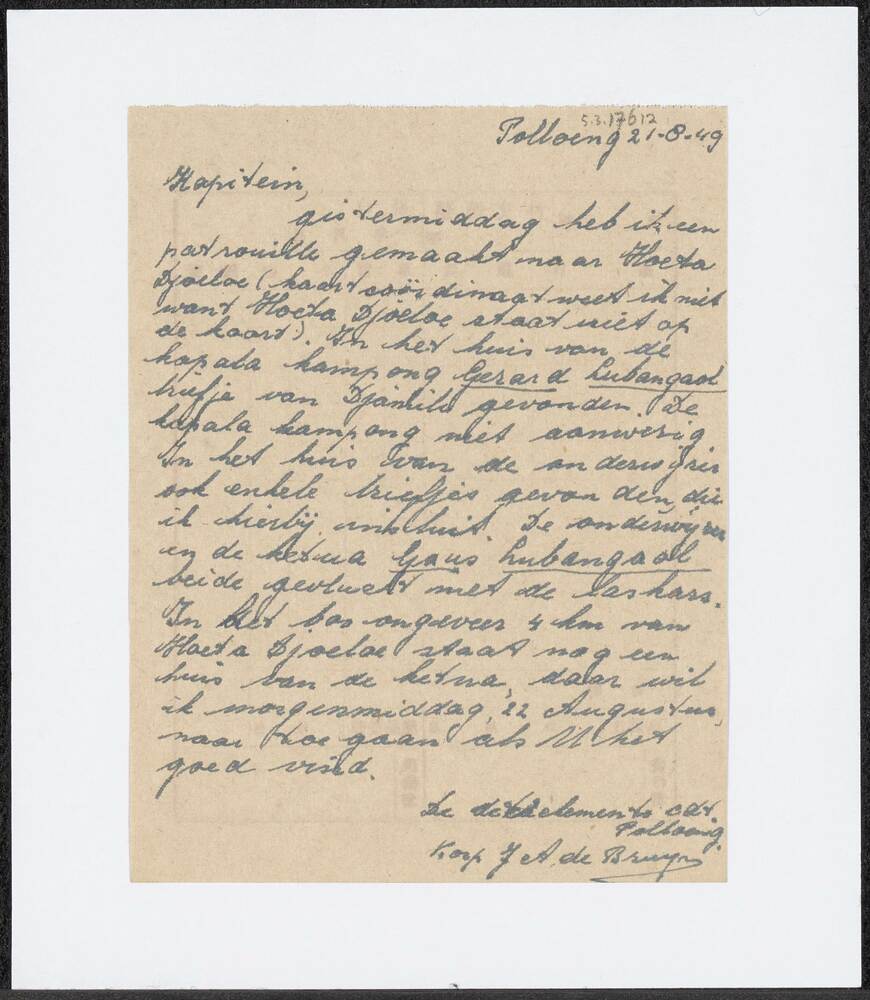 5.3.17612
Polloeng 21-8-49
Kapitein,
gistermiddag heb ik een
patrouille gemaakt naar Hoeta
Djoeloe (kaart coöidinaat weet ik niet
want Hoeta Djoeloe staat niet op
de kaart). In het huis van de
kapala kampong Gerard Lubangaol
briefje van Djamila gevonden. De
kapala kampong niet aanwezig
In het huis van de onderwijzer
ook enkele briefjes gevonden, die
ik hierbij insluit. De onderwijzer
en de ketua Gaus Lubangaol
beide gevlucht met de laskars.
In het bos ongeveer 4 km van
Hoeta Djoeloe staat nog een
huis van de ketua, daar wil
ik morgenmiddag, 22 Augustus,
naar toe gaan als U het
goed vind.
De detachements cdt
Polloeng.
Korp J A de Bruyn